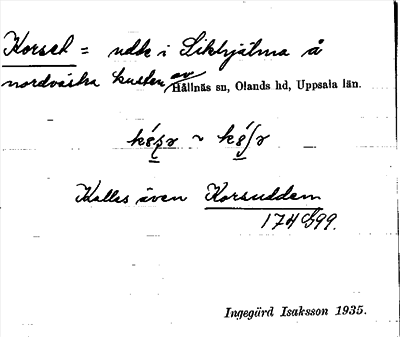 Korsch = udde i Sikhjälma å
nordvästra kusten av Hållnäs sn, Olands hd, Uppsala län.
Kallas även Korsudden
174 G 99.
Ingegärd Isaksson 1935.